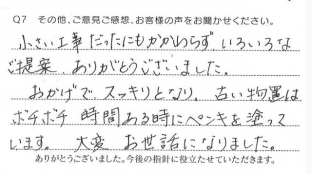 Q7 その他、ご意見ご感想、お客様の声をお聞かせください。
小さい工事だったにもかかわらず、いろいろな
ご提案、ありがとうございました。
おかげで スッキリとなり、古い物置は
ボチボチ 時間ある時にペンキを塗って
います。 大変 お世話になりました。
ありがとうございました。今後の指針に役立たせていただきます。